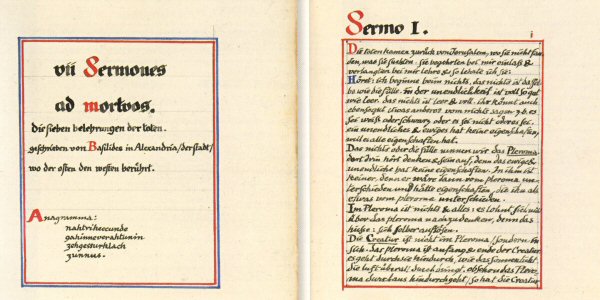 vii Sermones
ad mortuos.
Die sieben belehrungen der toten.
geschrieben von Basilides in Alexandria, der stadt,
wo der osten den westen berührt.
Anagramma:
nahtriheccunde
gahinneverahtunin
zehgessurklach
zunnus.
Sermo I.
i
Die toten kamen zurück von Jerusalem, wo sie nicht fan-
den, was sie suchten. sie begehrten bei mir einlaß &
verlangten bei mir lehre & so lehrte ich sie:
Höret: ich beginne beim nichts. das nichts ist dassel-
be wie die fülle. in der unendlichkeit ist voll so gut
wie leer. das nichts ist leer & voll. ihr könnt auch
ebensogut etwas anderes vom nichts sagen, z.b. es
sei weiß oder schwarz oder es sei nicht oder es sei.
ein unendliches & ewiges hat keine eigenschaften,
weil es alle eigenschaften hat.
Das nichts oder die fülle nennen wir das Pleroma.
dort drin hört denken & sein auf, denn das ewige &
unendliche hat keine eigenschaften. In ihm ist
keiner, denn er wäre dann vom pleroma un-
terschieden und hätte eigenschaften, die ihn als
etwas vom pleroma unterschieden.
Im Pleroma ist nichts & alles: es lohnt sich nicht
über das pleroma nachzudenken, denn das
hieße: sich selber auflösen.
Die Creatur ist nicht im Pleroma, sondern in
sich. das pleroma ist anfang & ende der Creatur.
es geht durch sie hindurch, wie das sonnenlicht
die luft überall durchdringt. obschon das Plero-
ma durchaus hindurchgeht, so hat die Creatur